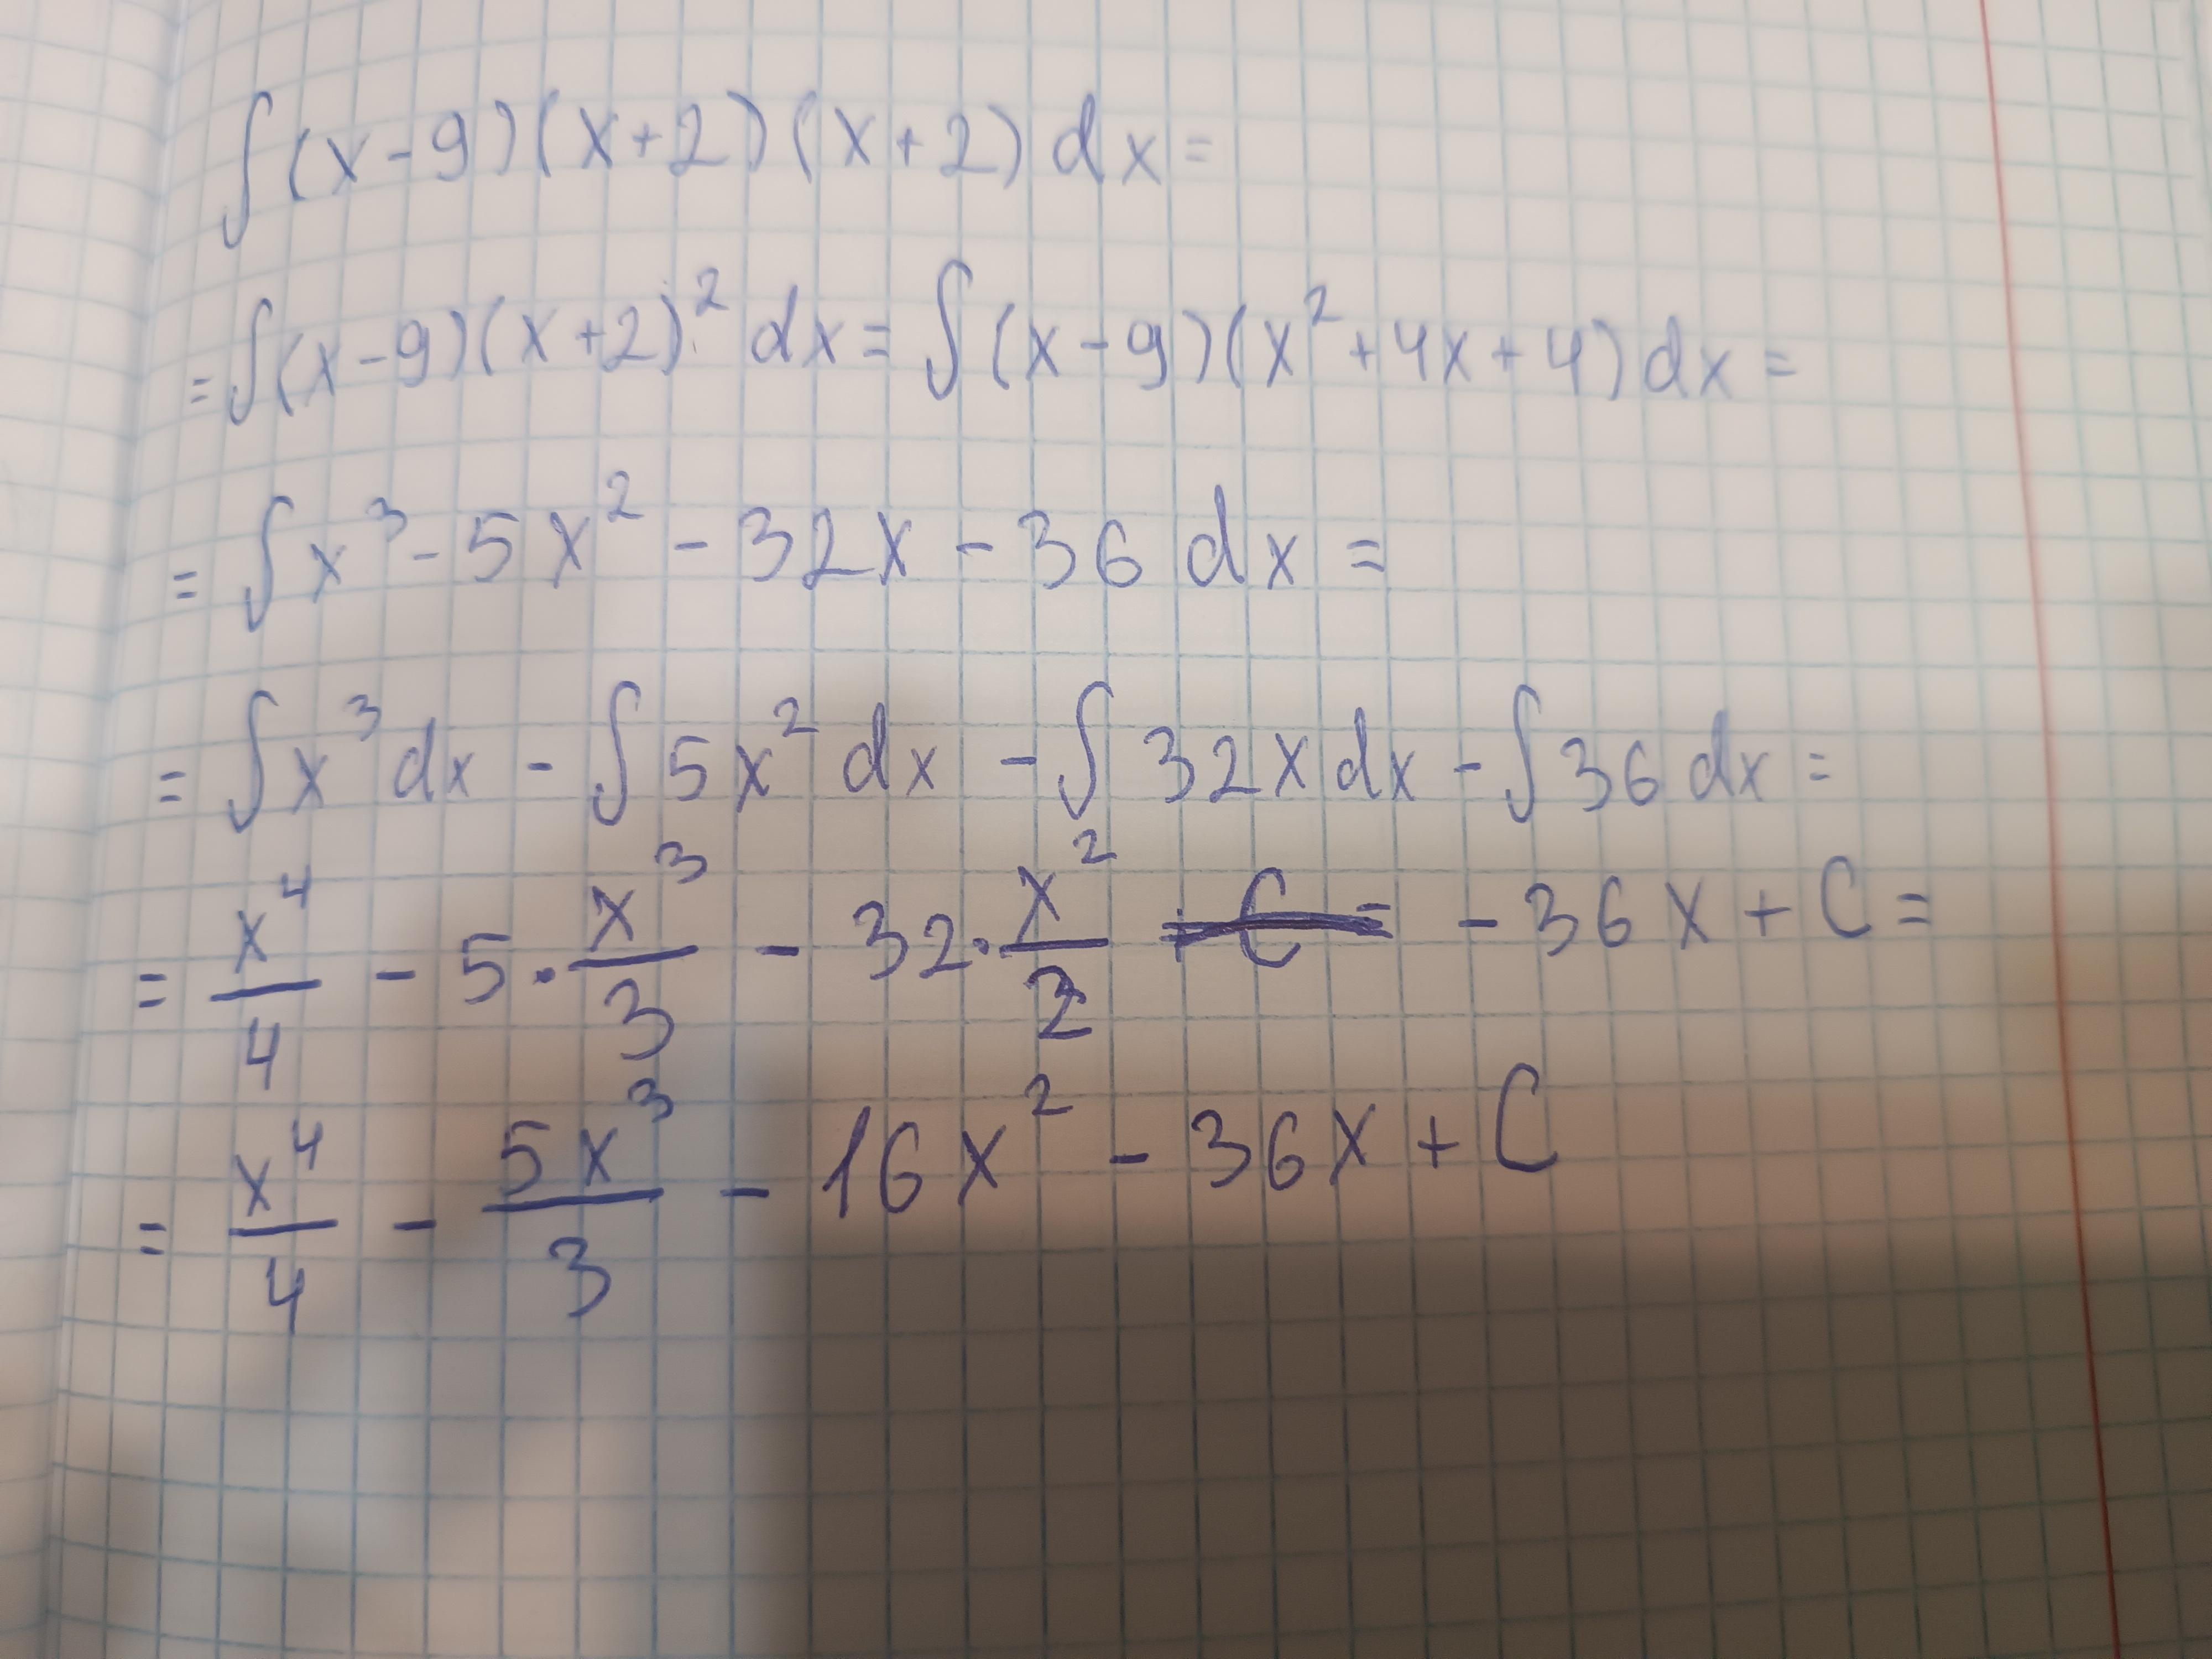 ∫(x-9)(x+2)(x+2)dx=
=∫(x-9)(x+2)² dx=∫(x-9)(x²+4x+4)dx=
=∫x³-5x²-32x-36 dx=
=∫x³dx-∫5x²dx-∫32xdx-∫36dx=
=x⁴/4-5·x³/3-32·x²/2 -36x+C=
=x⁴/4-5x³/3-16x²-36x+C